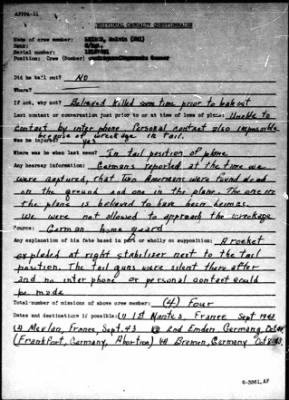 AFPPA-11
INDIVIDUAL CASUALTY QUESTIONNAIRE
Name of crew member: Melvin (NMI)
Rank: S/Sgt.
Serial number:
Position: Crew (Bomber) Gunner
Did he bail out? NO
Where?
If not, why not? Believed killed some time prior to bailout
Last contact or conversation just prior to or at time of loss of plane: Unable to
contact by inter phone. Personal contact also impossible
because of wreckage in tail.
Was he injured? yes
Where was he when last seen? In tail position of plane
Any hearsay information: Germans reported at the time we
were captured, that two Americans were found dead
on the ground and one in the plane. The one in
the plane is believed to have been
We were not allowed to approach the wreckage
Source: German home guard
Any explanation of his fate based in part or wholly on supposition: A rocket
exploded at right stabilizer next to the tail
position. The tail guns were silent there after
and no inter phone or personal contact could
be made
Total number of missions of above crew member: (4) Four
Dates and destination if possible: (1) 1st Nantes, France Sept 1943
France, Sept. 43 Emden, Germany, Oct
(Frankfort, Germany, Abortion) (4) Bremen, Germany Oct 8/43
6-3861,AF